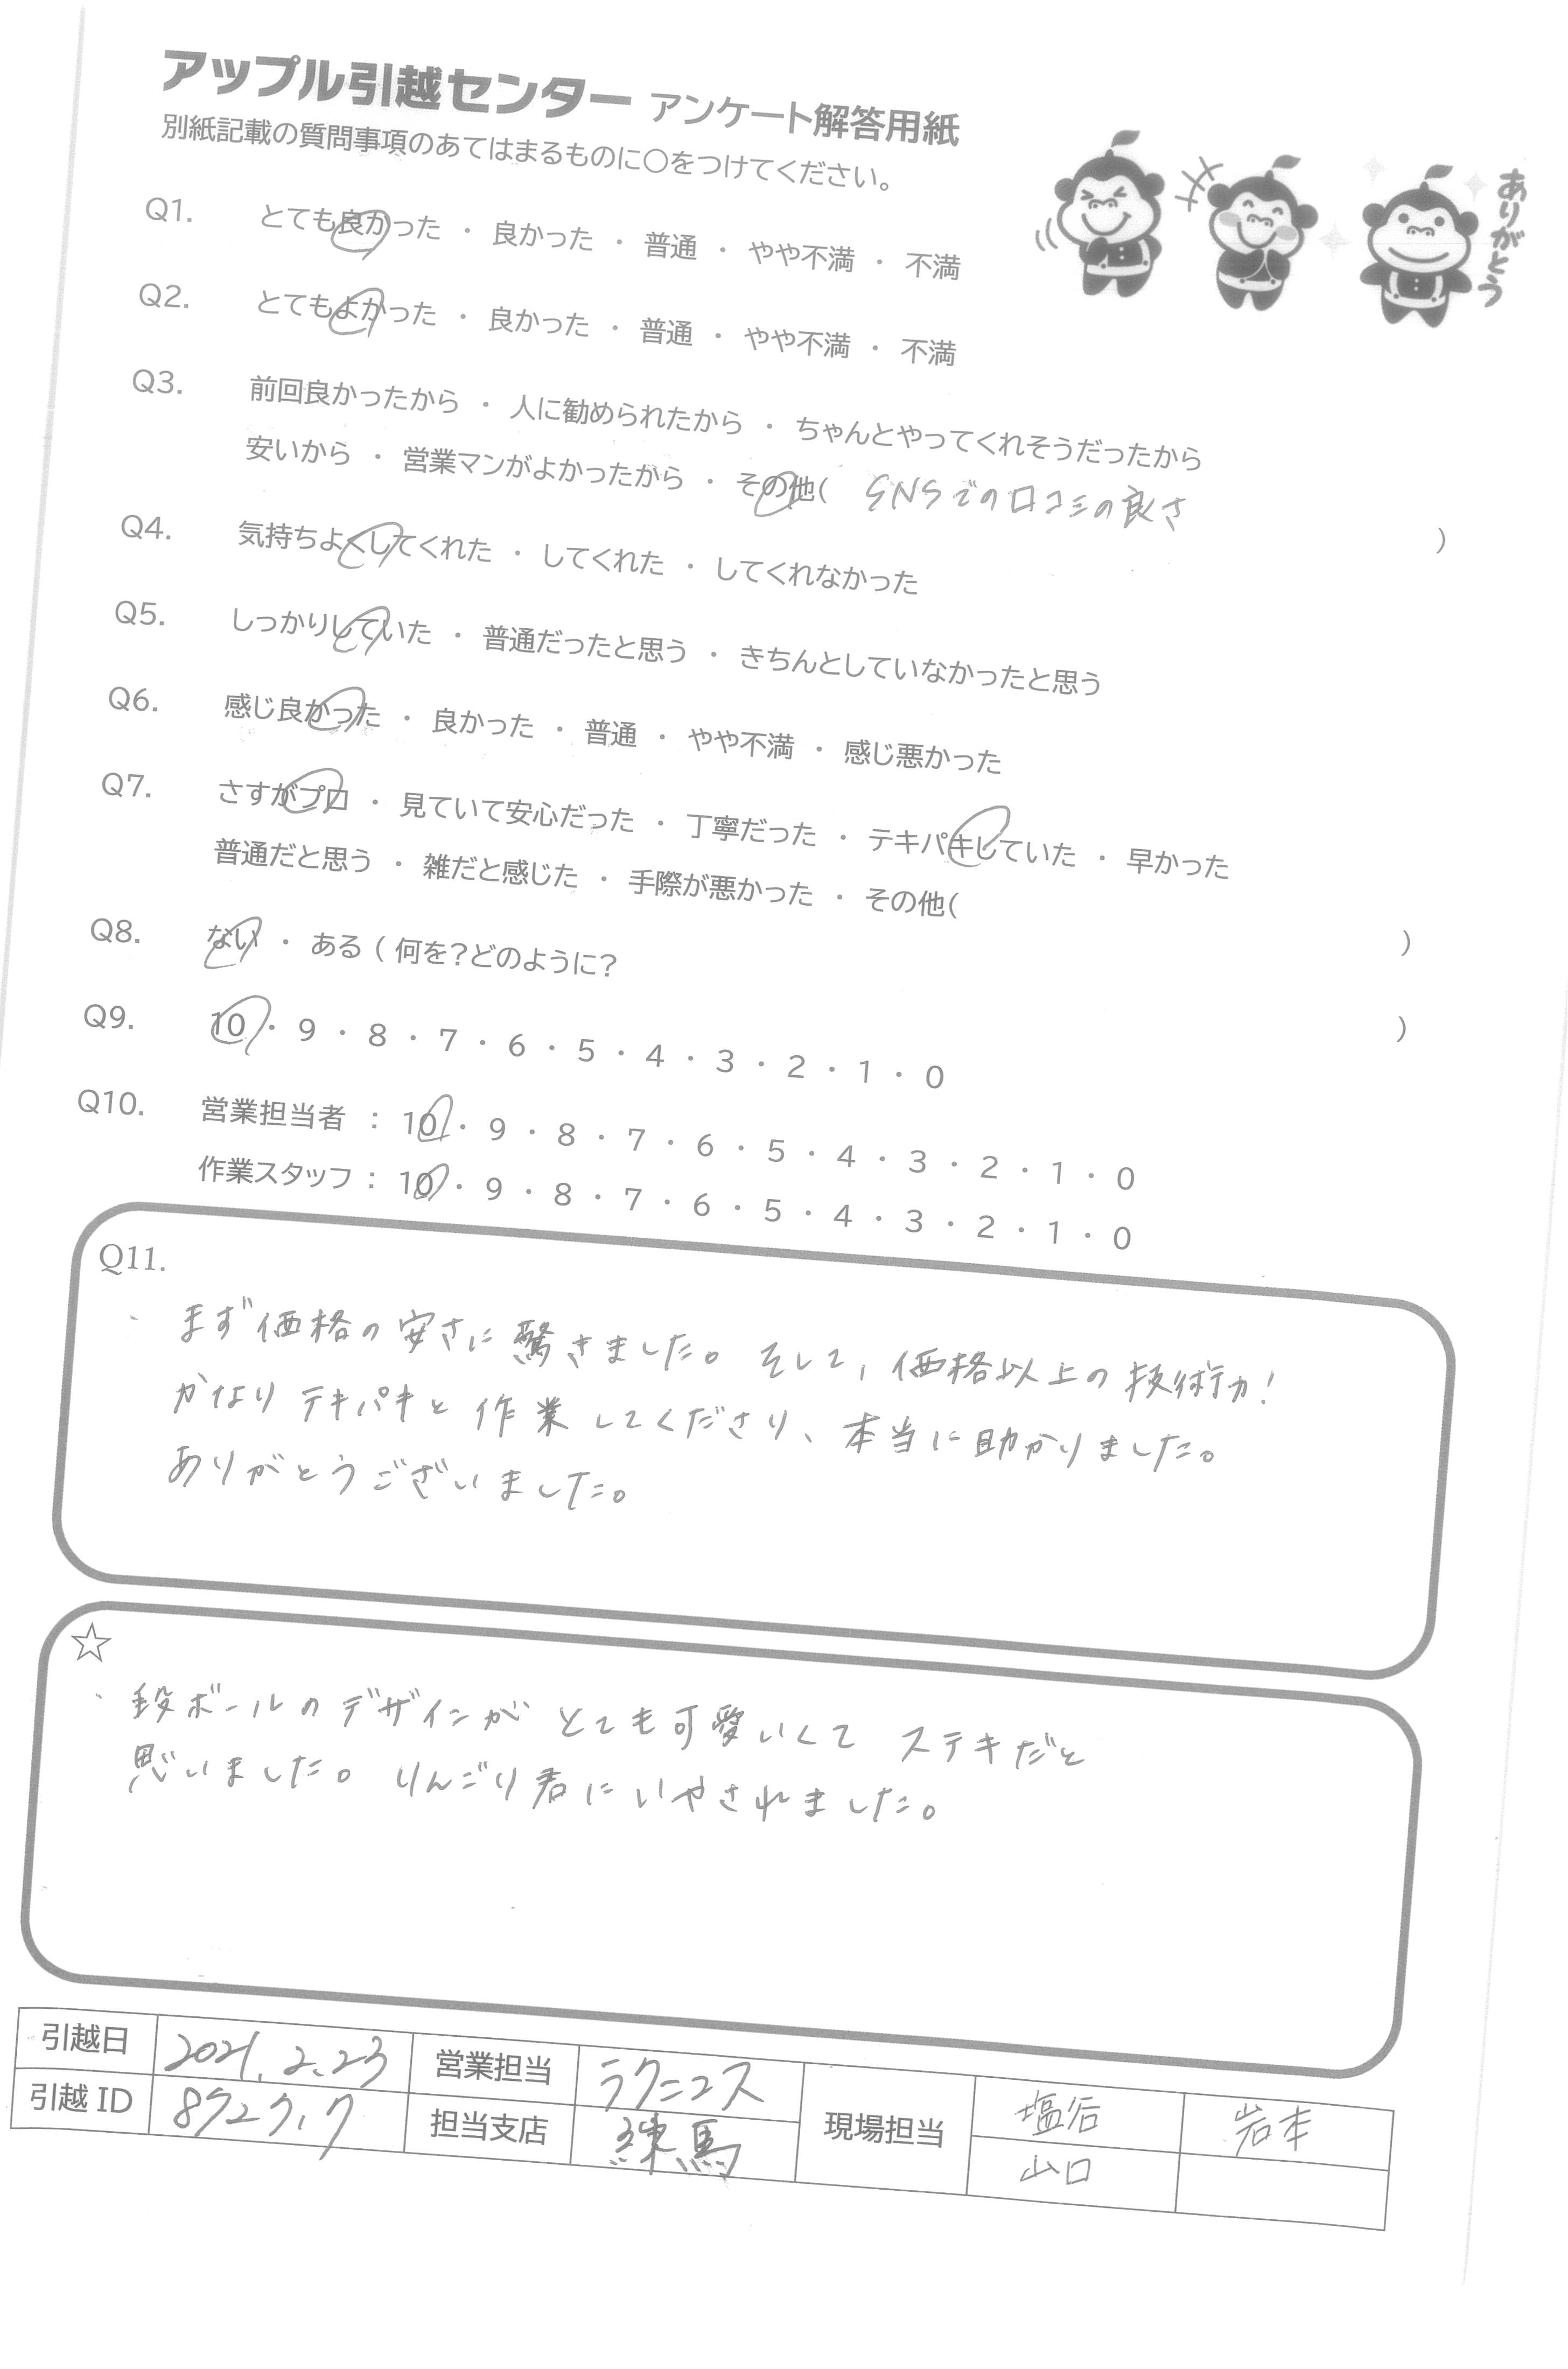 アップル引越センター アンケート解答用紙
別紙記載の質問事項のあてはまるものに〇をつけてください。
ありがとう
Q1. とても良かった ・ 良かった ・ 普通 ・ やや不満 ・ 不満
Q2. とてもよかった ・ 良かった ・ 普通 ・ やや不満 ・ 不満
Q3. 前回良かったから ・ 人に勧められたから ・ ちゃんとやってくれそうだったから
安いから ・ 営業マンがよかったから ・ その他( SNSでの口コミの良さ )
Q4. 気持ちよくしてくれた ・ してくれた ・ してくれなかった
Q5. しっかりしていた ・ 普通だったと思う ・ きちんとしていなかったと思う
Q6. 感じ良かった ・ 良かった ・ 普通 ・ やや不満 ・ 感じ悪かった
Q7. さすがプロ ・ 見ていて安心だった ・ 丁寧だった ・ テキパキしていた ・ 早かった
普通だと思う ・ 雑だと感じた ・ 手際が悪かった ・ その他( )
Q8. ない ・ ある ( 何を?どのように? )
Q9. 10 ・ 9 ・ 8 ・ 7 ・ 6 ・ 5 ・ 4 ・ 3 ・ 2 ・ 1 ・ 0
Q10. 営業担当者 : 10 ・ 9 ・ 8 ・ 7 ・ 6 ・ 5 ・ 4 ・ 3 ・ 2 ・ 1 ・ 0
作業スタッフ : 10 ・ 9 ・ 8 ・ 7 ・ 6 ・ 5 ・ 4 ・ 3 ・ 2 ・ 1 ・ 0
Q11.
まず価格の安さに驚きました。そして、価格以上の技術力!
かなりテキパキと作業してくださり、本当に助かりました。
ありがとうございました。
☆
段ボールのデザインがとても可愛いくてステキだと
思いました。りんごり君にいやされました。
引越日 2021.2.23 営業担当 ラクニコス 現場担当 塩谷 岩本
引越ID 担当支店 練馬 山口